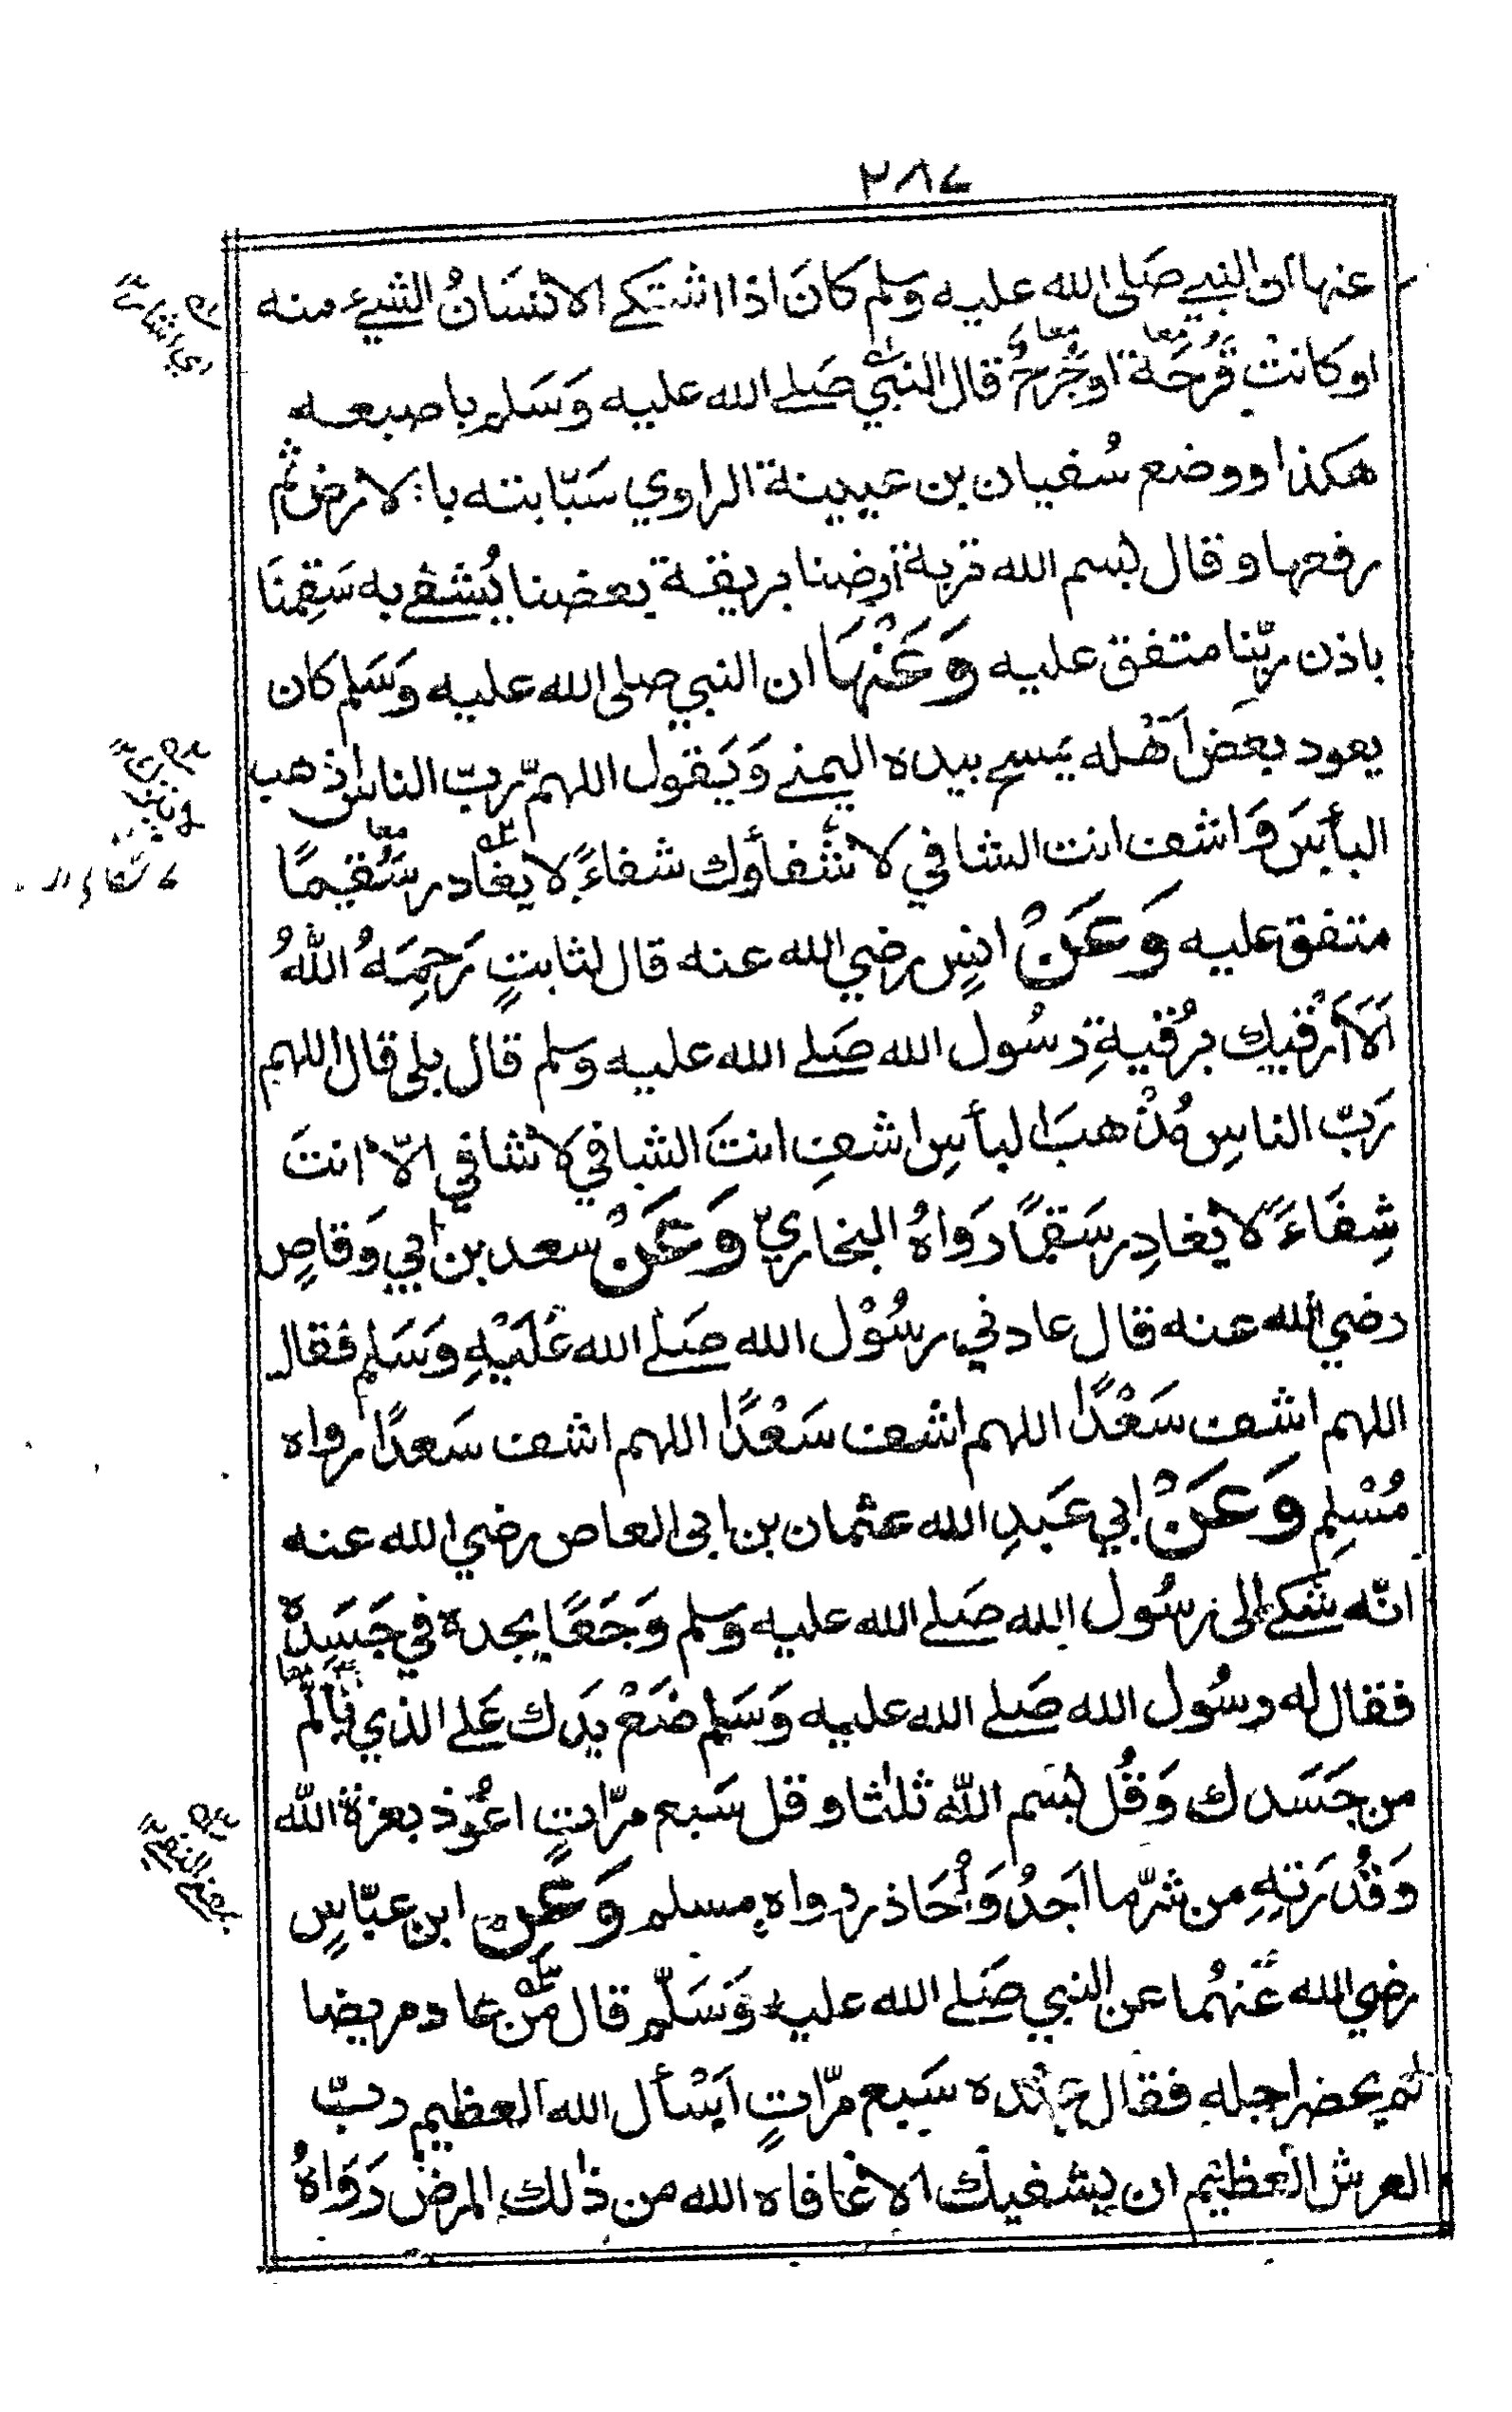 ٢٨٧
عنها ان النبي صَلى الله عليه وسلم كانَ اذا اشتكے الانسَانُ الشيءَ منه
او كانتْ قُرحَة اوجُرحٌ قال النبّي صَلے الله عليه وَسَلم باصبعه
هكذا ووضع سُفيان بن عيينة الراوي سَبّابته بالارض ثم
رفعها وقال بسم الله تربة أرضنا بريقة بعضنا يُشفے به سَقِمنَا
باذن ربّنا متفق عليه وَعَنْهَا ان النبي صلى الله عليه وَسَلم كان
يعود بعضَ اَهْله يمسح بيده اليمنے وَيَقول اللهمّ ربّ الناس اذهب
البأسَ وَاشف انت الشافي لاشفأوك شفاءً لا يغادر سَقيمًا
متفق عليه وَعَنْ انسٍ رضي الله عنه قال لثابتٍ رَحِمَهُ اللهُ
اَلَا اَرْقيك برُقيةِ رسُول الله صَلے الله عليه وسلم قال بلى قال اللهم
رَبّ الناسِ مُذْهبَ البأسِ اشفِ انتَ الشافي لا شافي الّا انتَ
شِفَاءً لا يُغادِر سَقمًا رَوَاهُ البخاري وَعَنْ سعد بن ابي وَقاصٍ
رضي الله عنه قال عادني رسُوْل الله صَلے الله عَلَيْهِ وَسَلم فقال
اللهم اشف سَعْدًا اللهم اشف سَعْدًا اللهم اشف سَعدًا رواه
مُسْلِم وَعَنْ ابي عَبدِ الله عثمان بن ابى العاص رضي الله عنه
انّه شكے الى رسُول الله صَلے الله عليه وسلم وَجَعًا يجده في جَسَدِهٖ
فقال له رسُول الله صَلے الله عليه وَسَلم ضَعْ يدَك عَلے الذي تَألَم
من جَسَدك وَقُل بسَم اللّه ثلٰثا وقل سَبع مرّاتٍ اعُوذ بعزة اللّه
وَقُدرَتِهٖ من شرّ ما اَجدُ وَاُحَاذر رواه مسلم وَعَن ابن عبّاسٍ
رضي الله عَنهُما عن النبي صَلے الله عليه وَسَلّم قال مَن عاد مريضا
لم يحضر اجله فقال عنده سَبع مرّاتٍ اَسْأل الله العظيم ربّ
العرش العظيم ان يشفيك الا عافاه الله من ذٰلك المرضِ رَوَاهُ